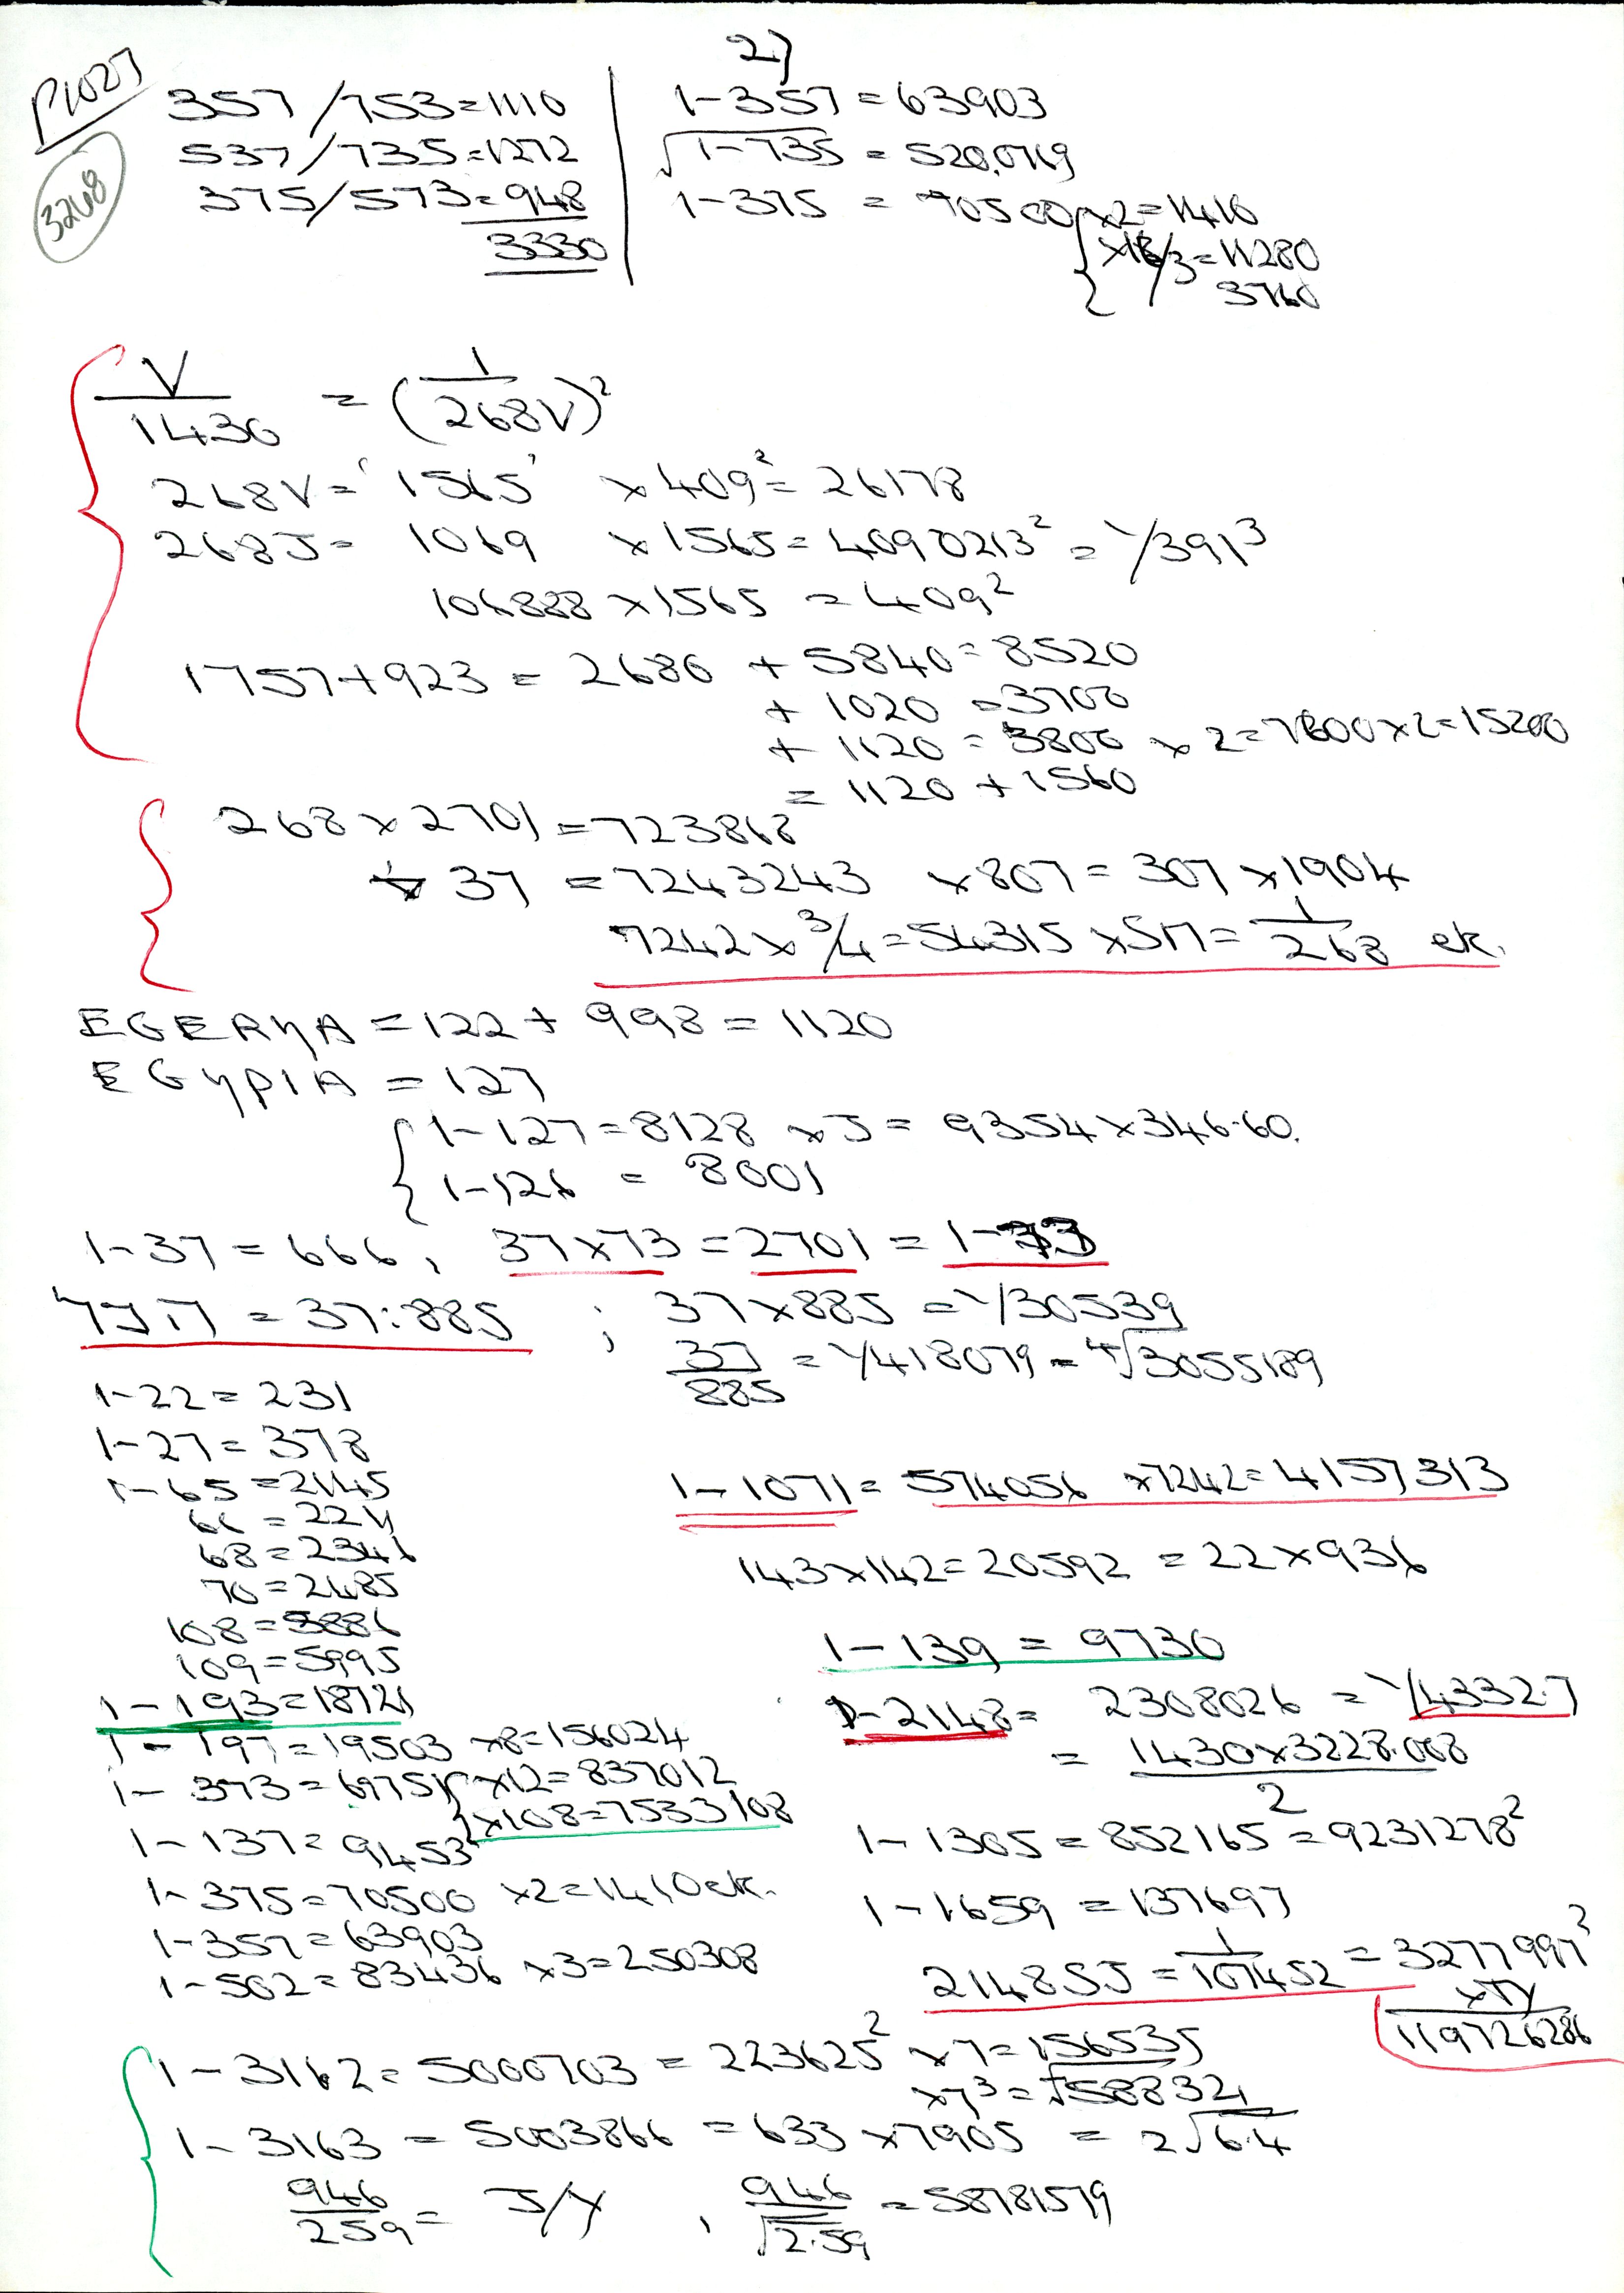 27
P1027
3268
357/753=1110
537/735=1272
375/573=948
3330
1-357=63903
√1-735=520.0769
1-375=70500 x2=1410
x16/3=11280
3760
V/1430 = (1/268V)²
268V='1565' x409²=26178
268J=1069 x1565=4090213²=1/391³
106888x1565=409²
1757+923=2680 + 5840=8520
+ 1020=3700
+ 1120=3800 x2=7600x2=15200
=1120+1560
268x2701=723868
37=7243243 x807=307x1904
7242x3/4=54315x517=1/268 etc.
EGERYA=122+998=1120
EGYPIA=127
1-127=8128 xJ=9354x346.60.
1-126=8001
1-37=666, 37x73=2701=1-73
=37:885 ; 37x885=1/30539
37/885=1/418079=⁴√3055189
1-22=231
1-27=378
1-65=2145
66=2211
68=2346
70=2485
108=5886
109=5995
1-193=18721
1-197=19503 x8=156024
1-373=69751 x12=837012
x108=7533108
1-137=9453
1-375=70500 x2=1410etc.
1-357=63903
1-562=83436 x3=250308
1-1071=574056 x7242=4157313
143x142=20592=22x936
1-139=9730
1-2148=2308026=1/4332.7
=1430x3228.008/2
1-1305=852165=9231278²
1-1659=137697
21485J=1/107452=3277997³
119726286
1-3162=5000703=223625² x7=156535
x7³=√588321
1-3163=5003866=633x7905=2√6.4
946/259=J/Y , 946/√2.59=58781579